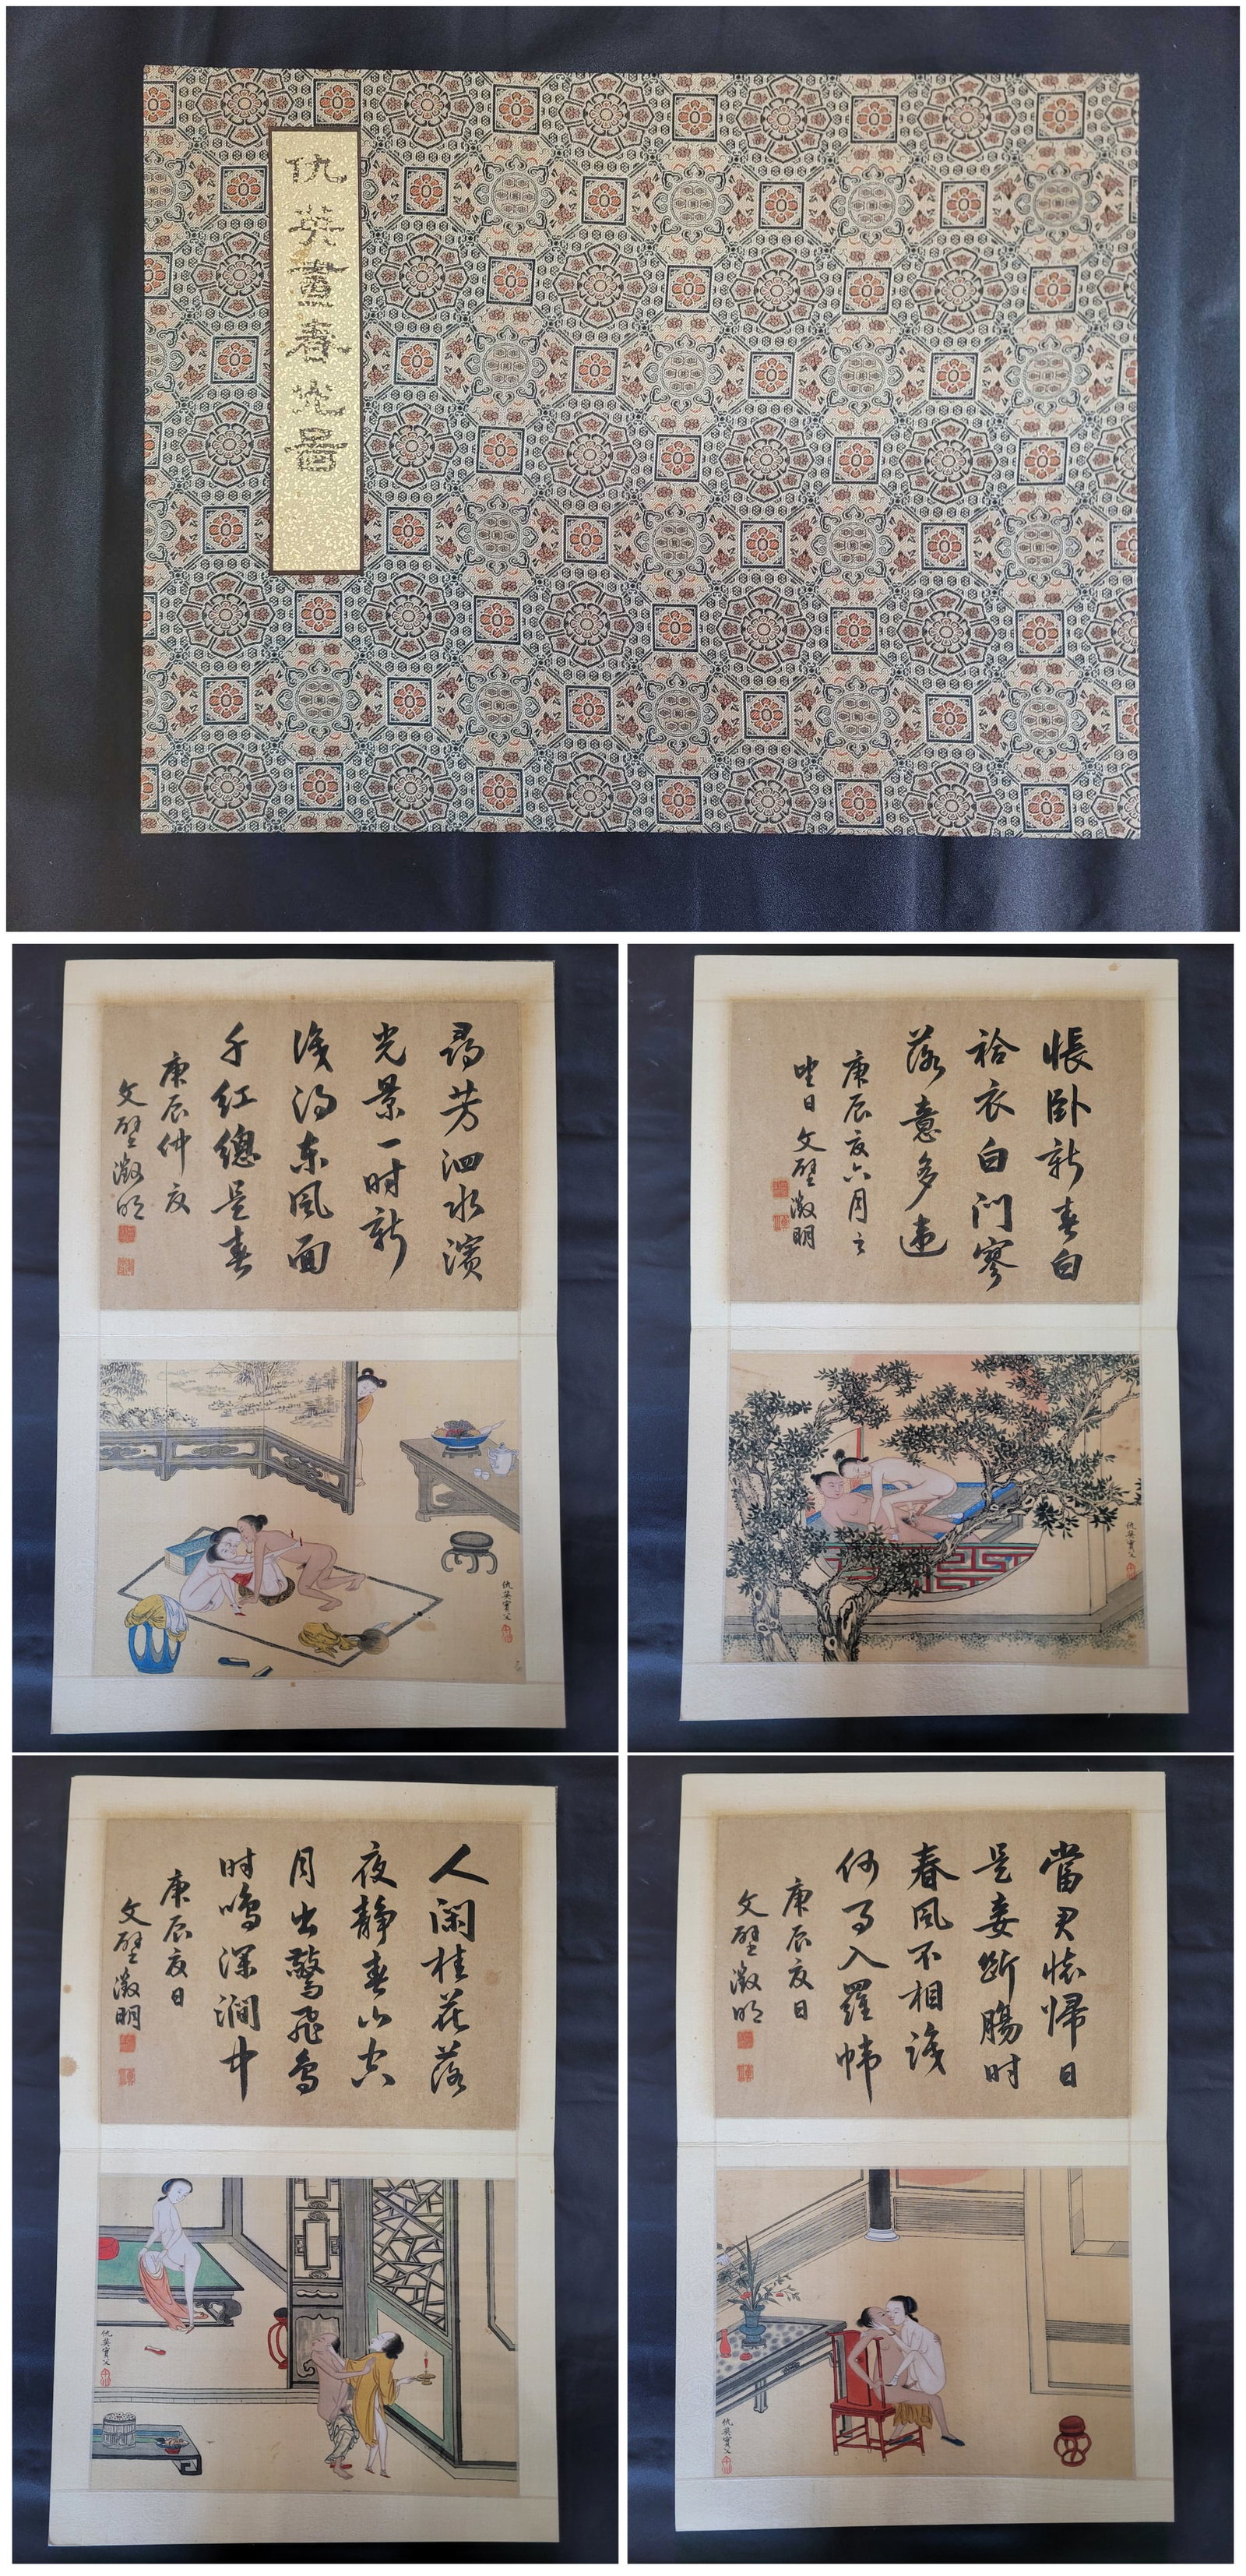 仇英畫春光啚
尋芳泗水濱
光景一时新
識得东風面
千红總是春
庚辰仲夏
文壁徵明
仇英實父
悵卧新春白
袷衣白门寥
落意多違
庚辰夏六月之
望日文壁徵明
仇英實父
人閑桂花落
夜靜春山空
月出驚飛鳥
时鳴深澗中
庚辰夏日
文壁徵明
仇英實父
當君懷歸日
是妾斷腸时
春風不相識
何事入羅幃
庚辰夏日
文壁徵明
仇英實父